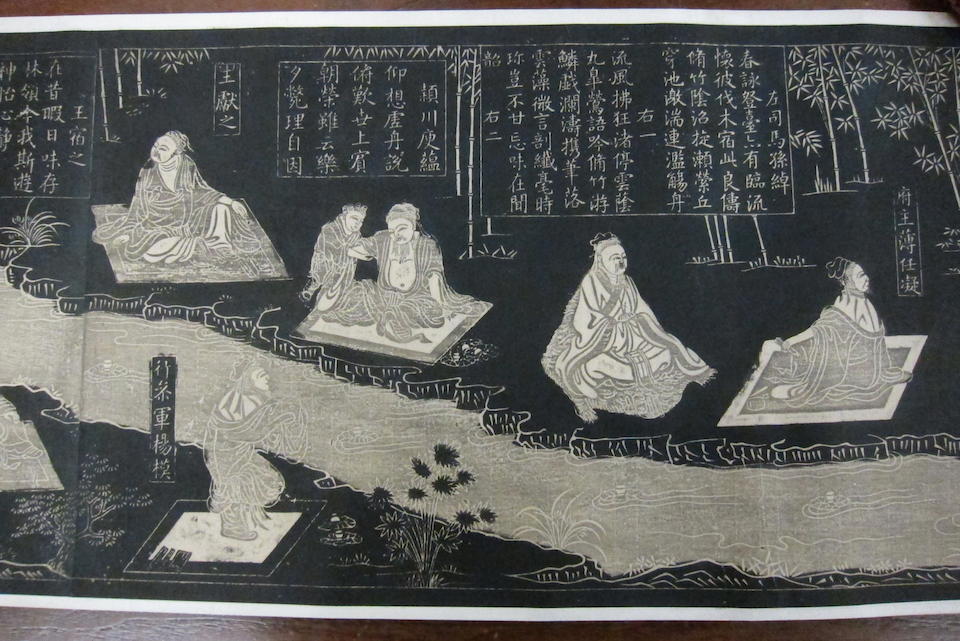 府主薄任凝
左司馬孫綽
春詠登臺亦有臨流
懷彼伐木宿此良儔
脩竹陰沼旋瀨縈丘
穿池激湍連濫觴舟
右一
流風拂狂渚停雲蔭
九皋鶯語吟脩竹游
鱗戲瀾濤携筆落
雲藻微言剖纖毫時
珍豈不甘忘味在聞
韶 右二
潁川庾蘊
仰想虛舟説
俯歎世上賓
朝榮雖云樂
夕斃理自因
王獻之
行叅軍楊模
王宿之
在昔暇日味存
林領今我斯遊
神怡心靜